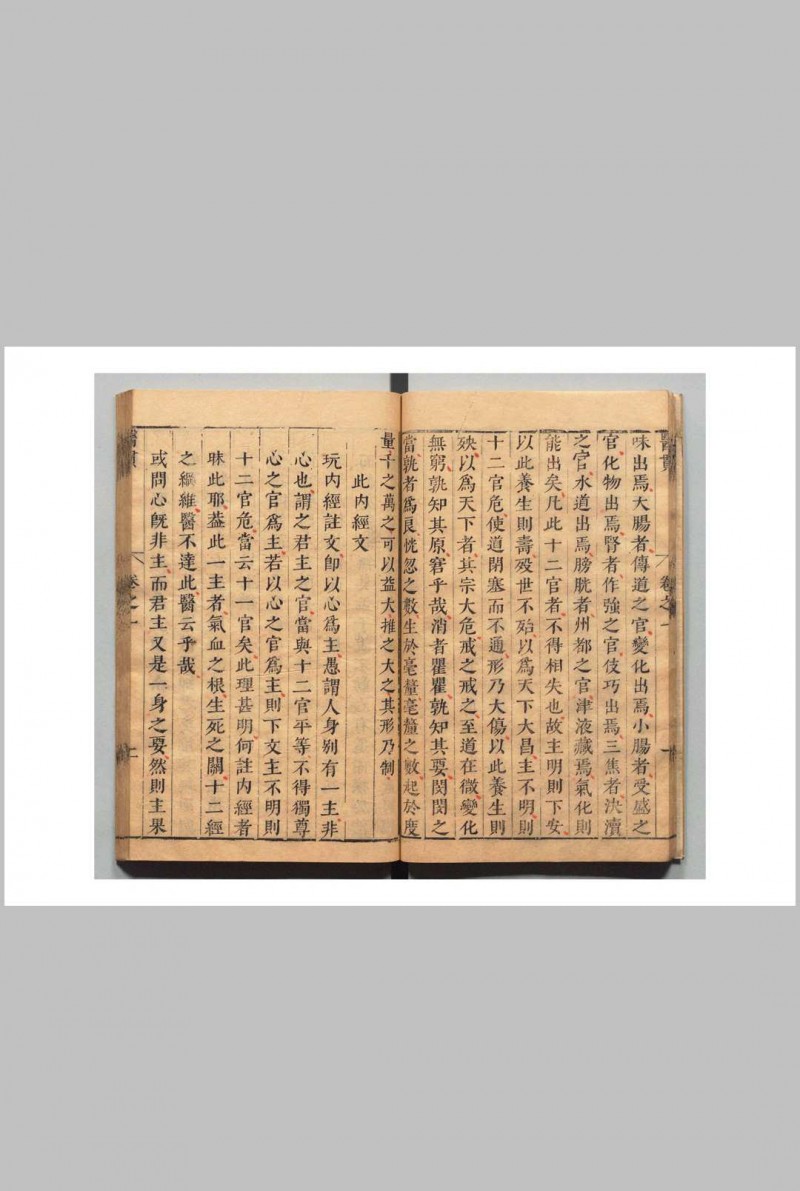 醫貫
卷之一
味出焉大腸者傳道之官變化出焉小腸者受盛之
官化物出焉腎者作強之官伎巧出焉三焦者決瀆
之官水道出焉膀胱者州都之官津液藏焉氣化則
能出矣凡此十二官者不得相失也故主明則下安
以此養生則壽歿世不殆以為天下大昌主不明則
十二官危使道閉塞而不通形乃大傷以此養生則
殃以為天下者其宗大危戒之戒之至道在微變化
無窮孰知其原窘乎哉消者瞿瞿孰知其要閔閔之
當孰者為良恍忽之數生於毫釐毫釐之數起於度
量千之萬之可以益大推之大之其形乃制
此內經文
玩內經註文卽以心為主愚謂人身别有一主非
心也謂之君主之官當與十二官平等不得獨尊
心之官為主若以心之官為主則下文主不明則
十二官危當云十一官矣此理甚明何註內經者
昧此耶葢此一主者氣血之根生死之關十二經
之綱維醫不達此醫云乎哉
或問心既非主而君主又是一身之要然則主果
醫貫
卷之一